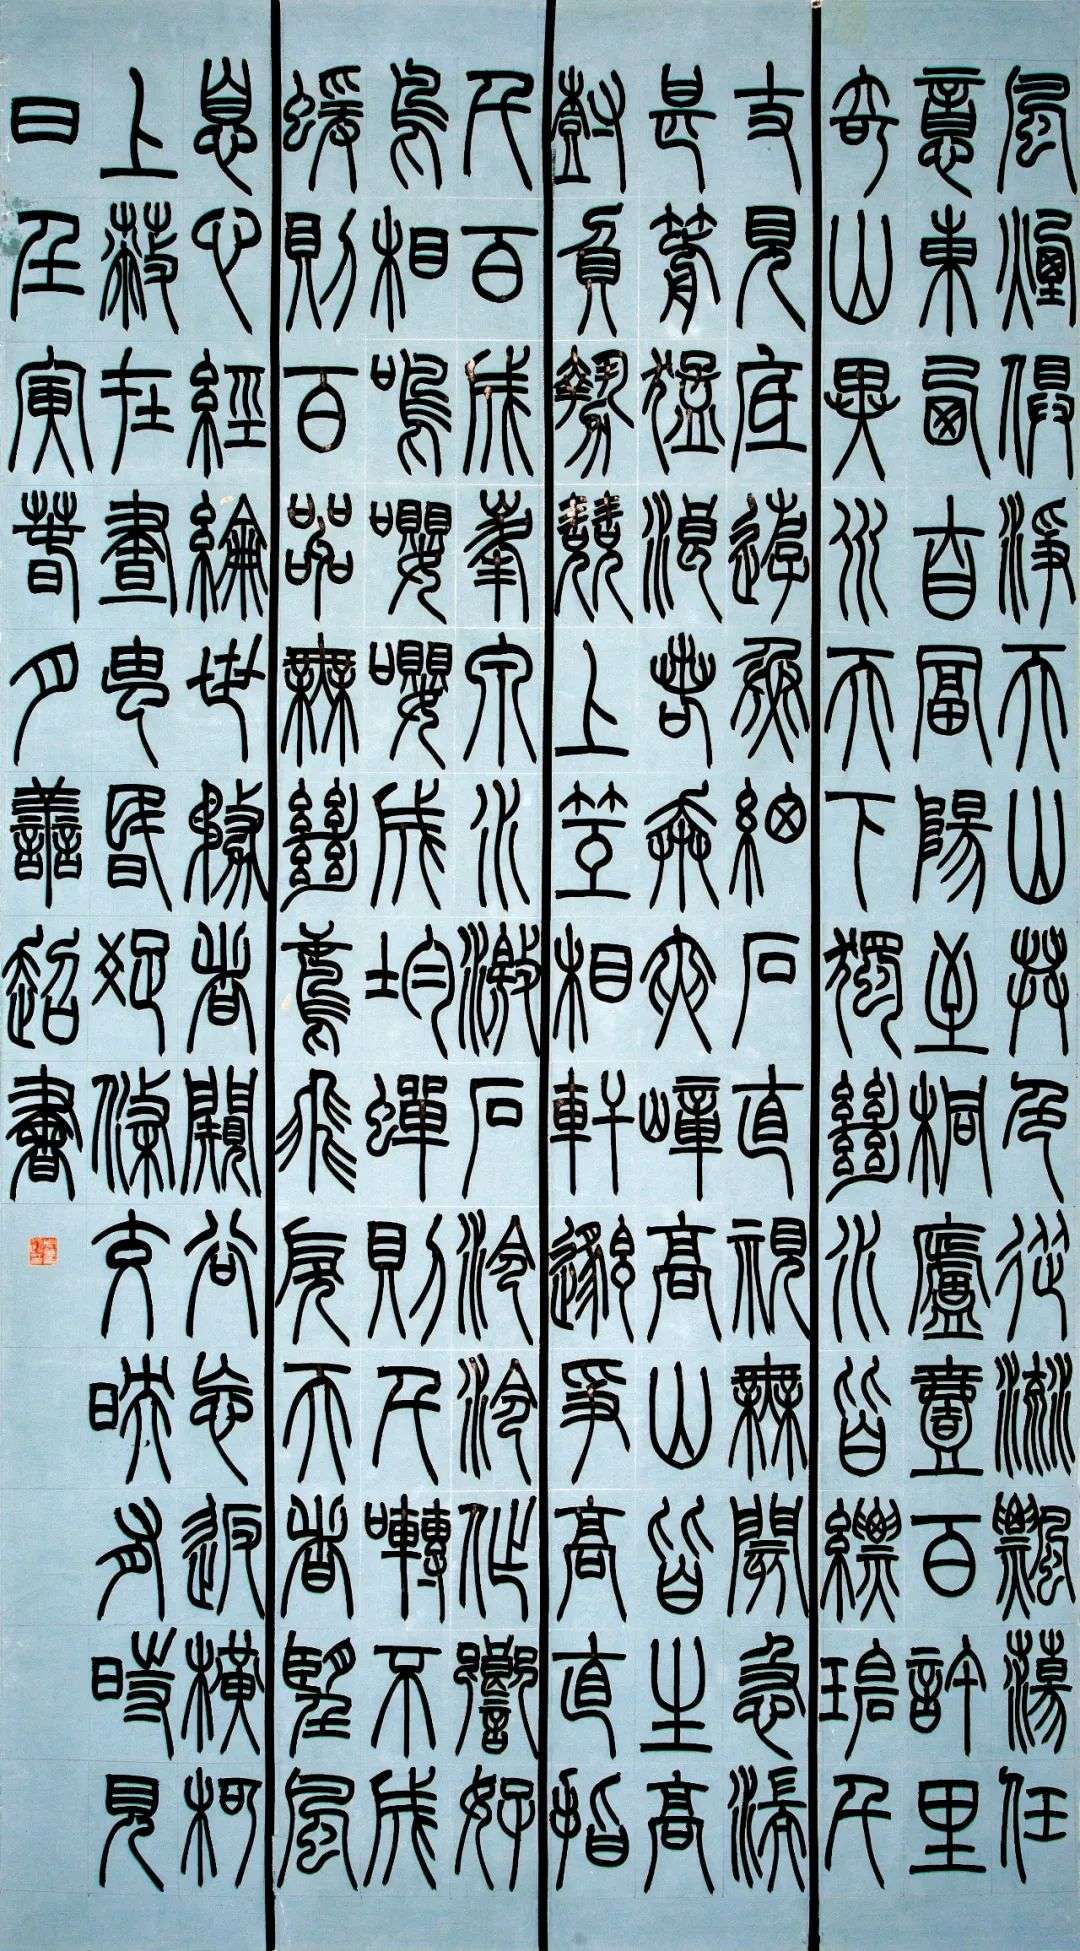 風煙俱淨天山共色從流飄蕩任
意東西自富陽至桐廬壹百許里
奇山異水天下獨絕水皆縹碧千
丈見底遊魚細石直視無閡急湍
甚箭猛浪若奔夾嶂高山皆生高
樹負勢競上互相軒邈爭高直指
千百成峯泉水激石泠泠作響好
鳥相鳴嚶嚶成均蟬則千囀不成
蝯則百嘂無絕鳶飛戾天者望風
息心經綸世務者闚谷忘返橫柯
上蔽在晝昏疏條交映有時見
日壬寅春月譱超書